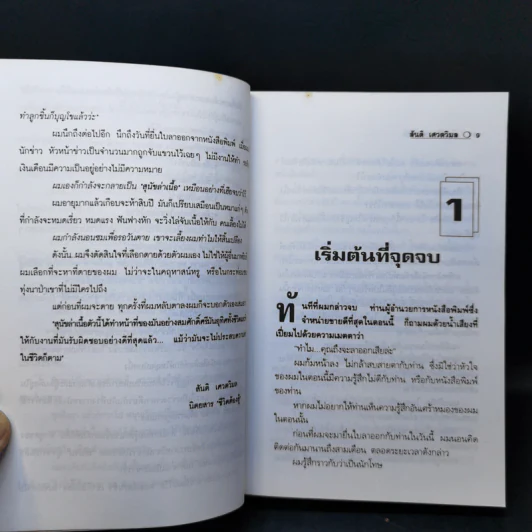 ทำลูกชิ้นก็บุญโขแล้วว่ะ"
ผมนึกถึงต่อไปอีก นึกถึงวันที่ยื่นใบลาออกจากหนังสือพิมพ์
นักข่าว หัวหน้าข่าวเป็นจำนวนมากถูกจับแขวนไว้เฉยๆ ไม่มีงานให้ทำ
เงินเดือนมีความเป็นอยู่อย่างไม่มีความหมาย
ผมเองก็กำลังจะกลายเป็น "สุนัขล่าเนื้อ" เหมือนอย่างที่เสียงว่าไว้
ผมอายุมากแล้วเกือบจะห้าสิบปี มันก็เปรียบเสมือนเป็นหมาแก่ๆ
ที่กำลังจะหมดเรี่ยว หมดแรง ฟันฟางหัก จะวิ่งไล่จับเนื้อให้กับ คนเลี้ยง
ผมกำลังนอนซมเพื่อรอวันตาย เขาจะเลี้ยงผมทำไมให้สิ้นเปลือง
ดังนั้น..ผมจึงตัดสินใจที่เลือกตายด้วยตัวผมเอง ไม่ใช่ให้ผู้อื่น
ผมเลือกที่จะหาที่ตายของผม ไม่ว่าจะในคฤหาสน์หรู หรือใน
ทุ่งนาป่าเขาที่ไม่มีใครไปถึง
แต่ก่อนที่ผมจะตาย ทุกครั้งที่ผมหลับตาลงผมก็จะบอกตัวเองเสมอ
"สุนัขล่าเนื้อตัวนี้ได้ทำหน้าที่ของมันอย่างสมศักดิ์ศรีมันอุทิศทั้งชีวิต
ให้กับงานที่มันรับผิดชอบอย่างดีที่สุดแล้ว... แม้ว่ามันจะไม่ประสบ
ในชีวิตก็ตาม"
สันติ เศวตวิมล
นิตยสาร "ชีวิตต้องสู้"
สันติ เศวตวิมล ๑ ๙
1
เริ่มต้นที่จุดจบ
ทันทีที่ผมกล่าวจบ ท่านผู้อำนวยการหนังสือพิมพ์ซึ่ง
จำหน่ายขายดีที่สุดในตอนนี้ ก็ถามผมด้วยน้ำเสียงที่
เปี่ยมไปด้วยความเมตตาว่า
"ทำไม...คุณถึงจะลาออกเสียล่ะ"
ผมก้มหน้าลง ไม่กล้าสบสายตากับท่าน ซึ่งมิใช่ว่าหัวใจ
ของผมในตอนนี้มีความรู้สึกไม่ดีกับท่าน หรือกับหนังสือพิมพ์
ของท่าน
หากผมไม่อยากให้ท่านเห็นความรู้สึกอันเศร้าหมองของผม
ในตอนนั้น
ก่อนที่ผมจะมายื่นใบลาออกกับท่านในวันนี้ ผมนอนคิด
ติดต่อกันมานานถึงสามเดือน ตลอดระยะเวลาดังกล่าว
ผมรู้สึกราวกับว่าเป็นนักโทษ